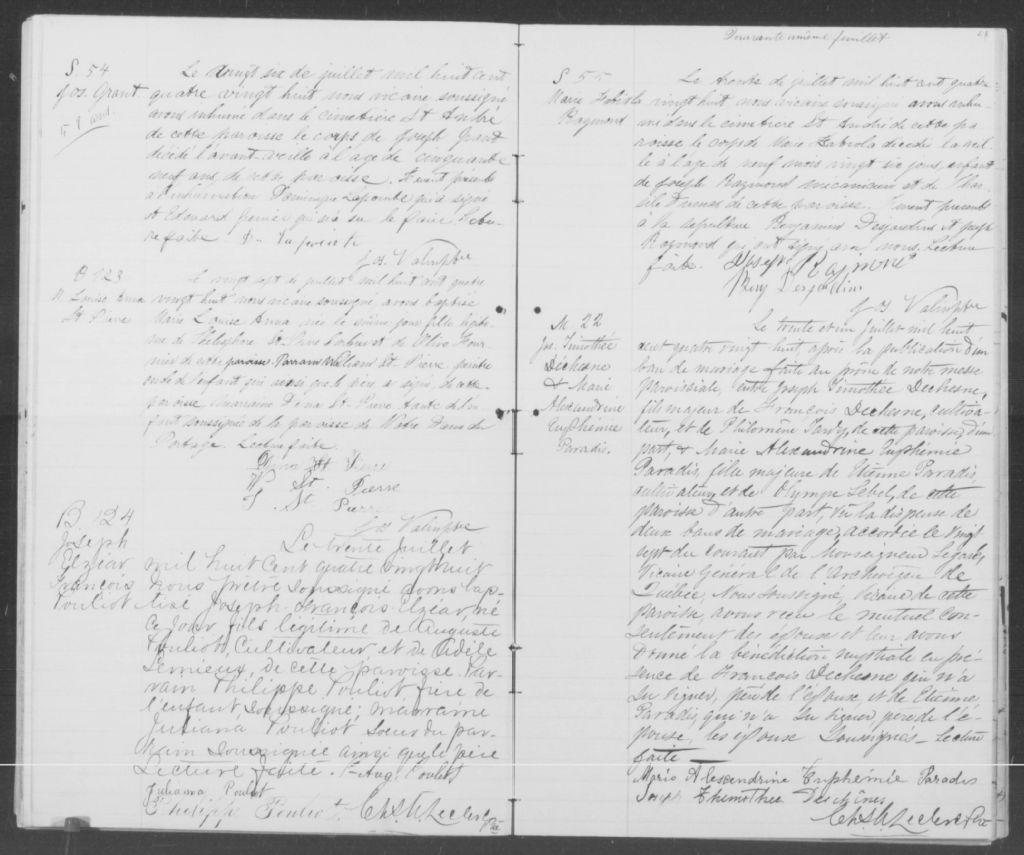 S. 54
Jos. Grant
59 ans.
Le vingt six de juillet mil huit cent
quatre vingt huit nous vicaire soussigné
avons inhumé dans le cimetière St André
de cette paroisse le corps de Joseph Grant
décédé l'avant veille à l'age de cinquante
neuf ans de cette paroisse. Etaient présents
à l'inhumation Dominique Lapointe qui a signé
et Edouard
faite. D. Lapointe
B 123
M. Louise Anna
St. Pierre
Le vingt sept de juillet mil huit cent quatre
vingt huit nous vicaire soussigné avons baptisé
Marie Louise Anna née le même jour fille légiti-
me de Thélesphore St. Pierre et de
de cette paroisse. Parrain William St. Pierre peintre
oncle de l'enfant qui ainsi que le père a signé, de cette
paroisse, marraine Dina St. Pierre tante de l'en-
fant soussignée de la paroisse de Notre Dame du
Portage. Lecture faite.
Dina St. Pierre
W. St. Pierre
T. St. Pierre
B. 124
Joseph
Elzéar
François
Pouliot
Le trente Juillet
mil huit cent quatre vingt huit
nous prêtre soussigné avons bap-
tisé Joseph-François-Elzéar né
ce jour fils légitime de Auguste
Pouliot, Cultivateur et de Adèle
Lemieux, de cette paroisse. Par-
rain Philippe Pouliot frère de
l'enfant, soussigné; marraine
Juliana Pouliot soeur du par-
rain soussignée ainsi que le père
Lecture faite. Aug. Pouliot
Juliana Pouliot
Philippe Pouliot. Chs. A. Leclerc Ptre
Quarante unième feuillet
S 55
Marie Fabiola
Raymond
Le trente de juillet mil huit cent quatre
vingt huit nous vicaire soussigné avons inhu-
mé dans le cimetière St André de cette pa
roisse le corps de Marie Fabiola décédée la veil-
le à l'age de neuf mois vingt six jours, enfant
de Joseph Raymond mécanicien et de
de cette paroisse. Furent présents
à la sépulture Benjamin Desjardins et Joseph
Raymond qui ont signé avec nous. Lecture
faite. Joseph Raymond
Benj Desjardins
M. 22
Jos. Timothée
Dechesne
& Marie
Alexandrine
Euphémie
Paradis.
Le trente et un Juillet mil huit
cent quatre vingt huit, après la publication d'un
ban de mariage faite au prône de notre messe
paroissiale, entre Joseph Timothée Dechesne,
fils majeur de François Dechesne, cultiva-
teur, et de Philomène Tardy, de cette paroisse, d'une
part, & Marie Alexandrine Euphémie
Paradis, fille majeure de Etienne Paradis
cultivateur, et de Olympe Lebel, de cette
paroisse d'autre part, vu la dispense de
deux bans de mariage, accordée le vingt
sept du courant par Monseigneur Légaré,
Vicaire Général de l'Archevêque de
Québec, Nous soussigné, vicaire de cette
paroisse, avons reçu le mutuel con-
sentement des époux et leur avons
donné la bénédiction nuptiale en pré-
sence de François Dechesne qui n'a
su signer, père de l'époux, et de Etienne
Paradis, qui n'a su signer, père de l'é-
pouse, les époux soussignés — Lecture
faite —
Marie Alexendrine Euphémie Paradis
Joseph Themothée Deschênes
Chs. A. Leclerc Ptre